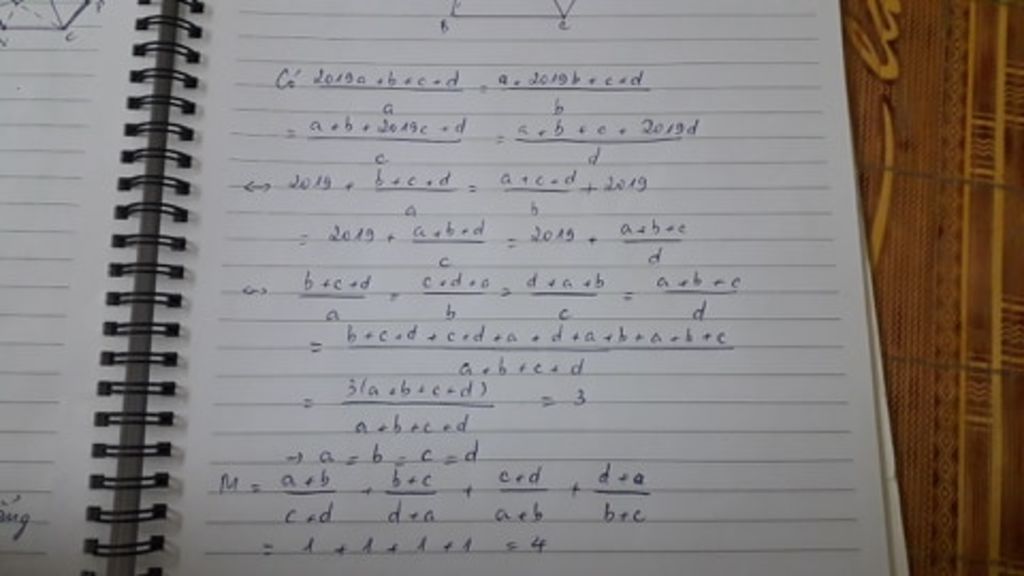 B C
C
Có 2019a+b+c+d / a = a+2019b+c+d / b
= a+b+2019c+d / c = a+b+c+2019d / d
<-> 2019 + b+c+d / a = a+c+d / b + 2019
= 2019 + a+b+d / c = 2019 + a+b+c / d
<-> b+c+d / a = c+d+a / b = d+a+b / c = a+b+c / d
= b+c+d+c+d+a+d+a+b+a+b+c / a+b+c+d
= 3(a+b+c+d) / a+b+c+d = 3
-> a = b = c = d
M = a+b / c+d + b+c / d+a + c+d / a+b + d+a / b+c
= 1 + 1 + 1 + 1 = 4